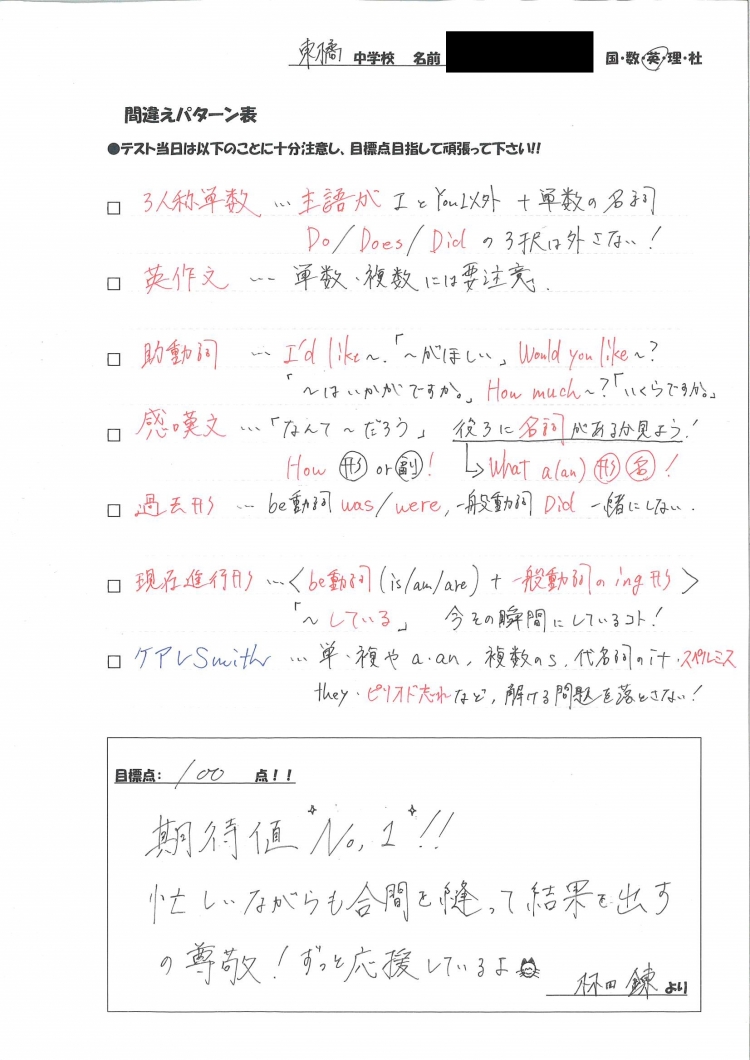 東橘 中学校 名前 国・数・英・理・社
間違えパターン表
●テスト当日は以下のことに十分注意し、目標点目指して頑張って下さい!!
□ 3人称単数 … 主語が IとYou以外 + 単数の名詞
Do/Does/Did の3択は外さない!
□ 英作文 … 単数・複数には要注意.
□ 助動詞 … I'd like~.「~がほしい」 Would you like~?
「~はいかがですか。」 How much~?「いくらですか。」
□ 感嘆文 …「なんて~だろう」 後ろに名詞があるか見よう!
How 形 or 副! ↳ What a(an) 形 名!
□ 過去形 … be動詞 was/were, 一般動詞 Did 一緒にしない.
□ 現在進行形 …<be動詞(is/am/are) + 一般動詞のing形>
「~している」 今その瞬間にしているコト!
□ ケアレSmith … 単・複や a・an, 複数のs, 代名詞のit・スペルミス
they・ピリオド忘れなど, 解ける問題を落とさない!
目標点: 100 点!!
期待値 No,1!!
忙しいながらも合間を縫って結果を出す
の尊敬!ずっと応援しているよ
林田 錬 より